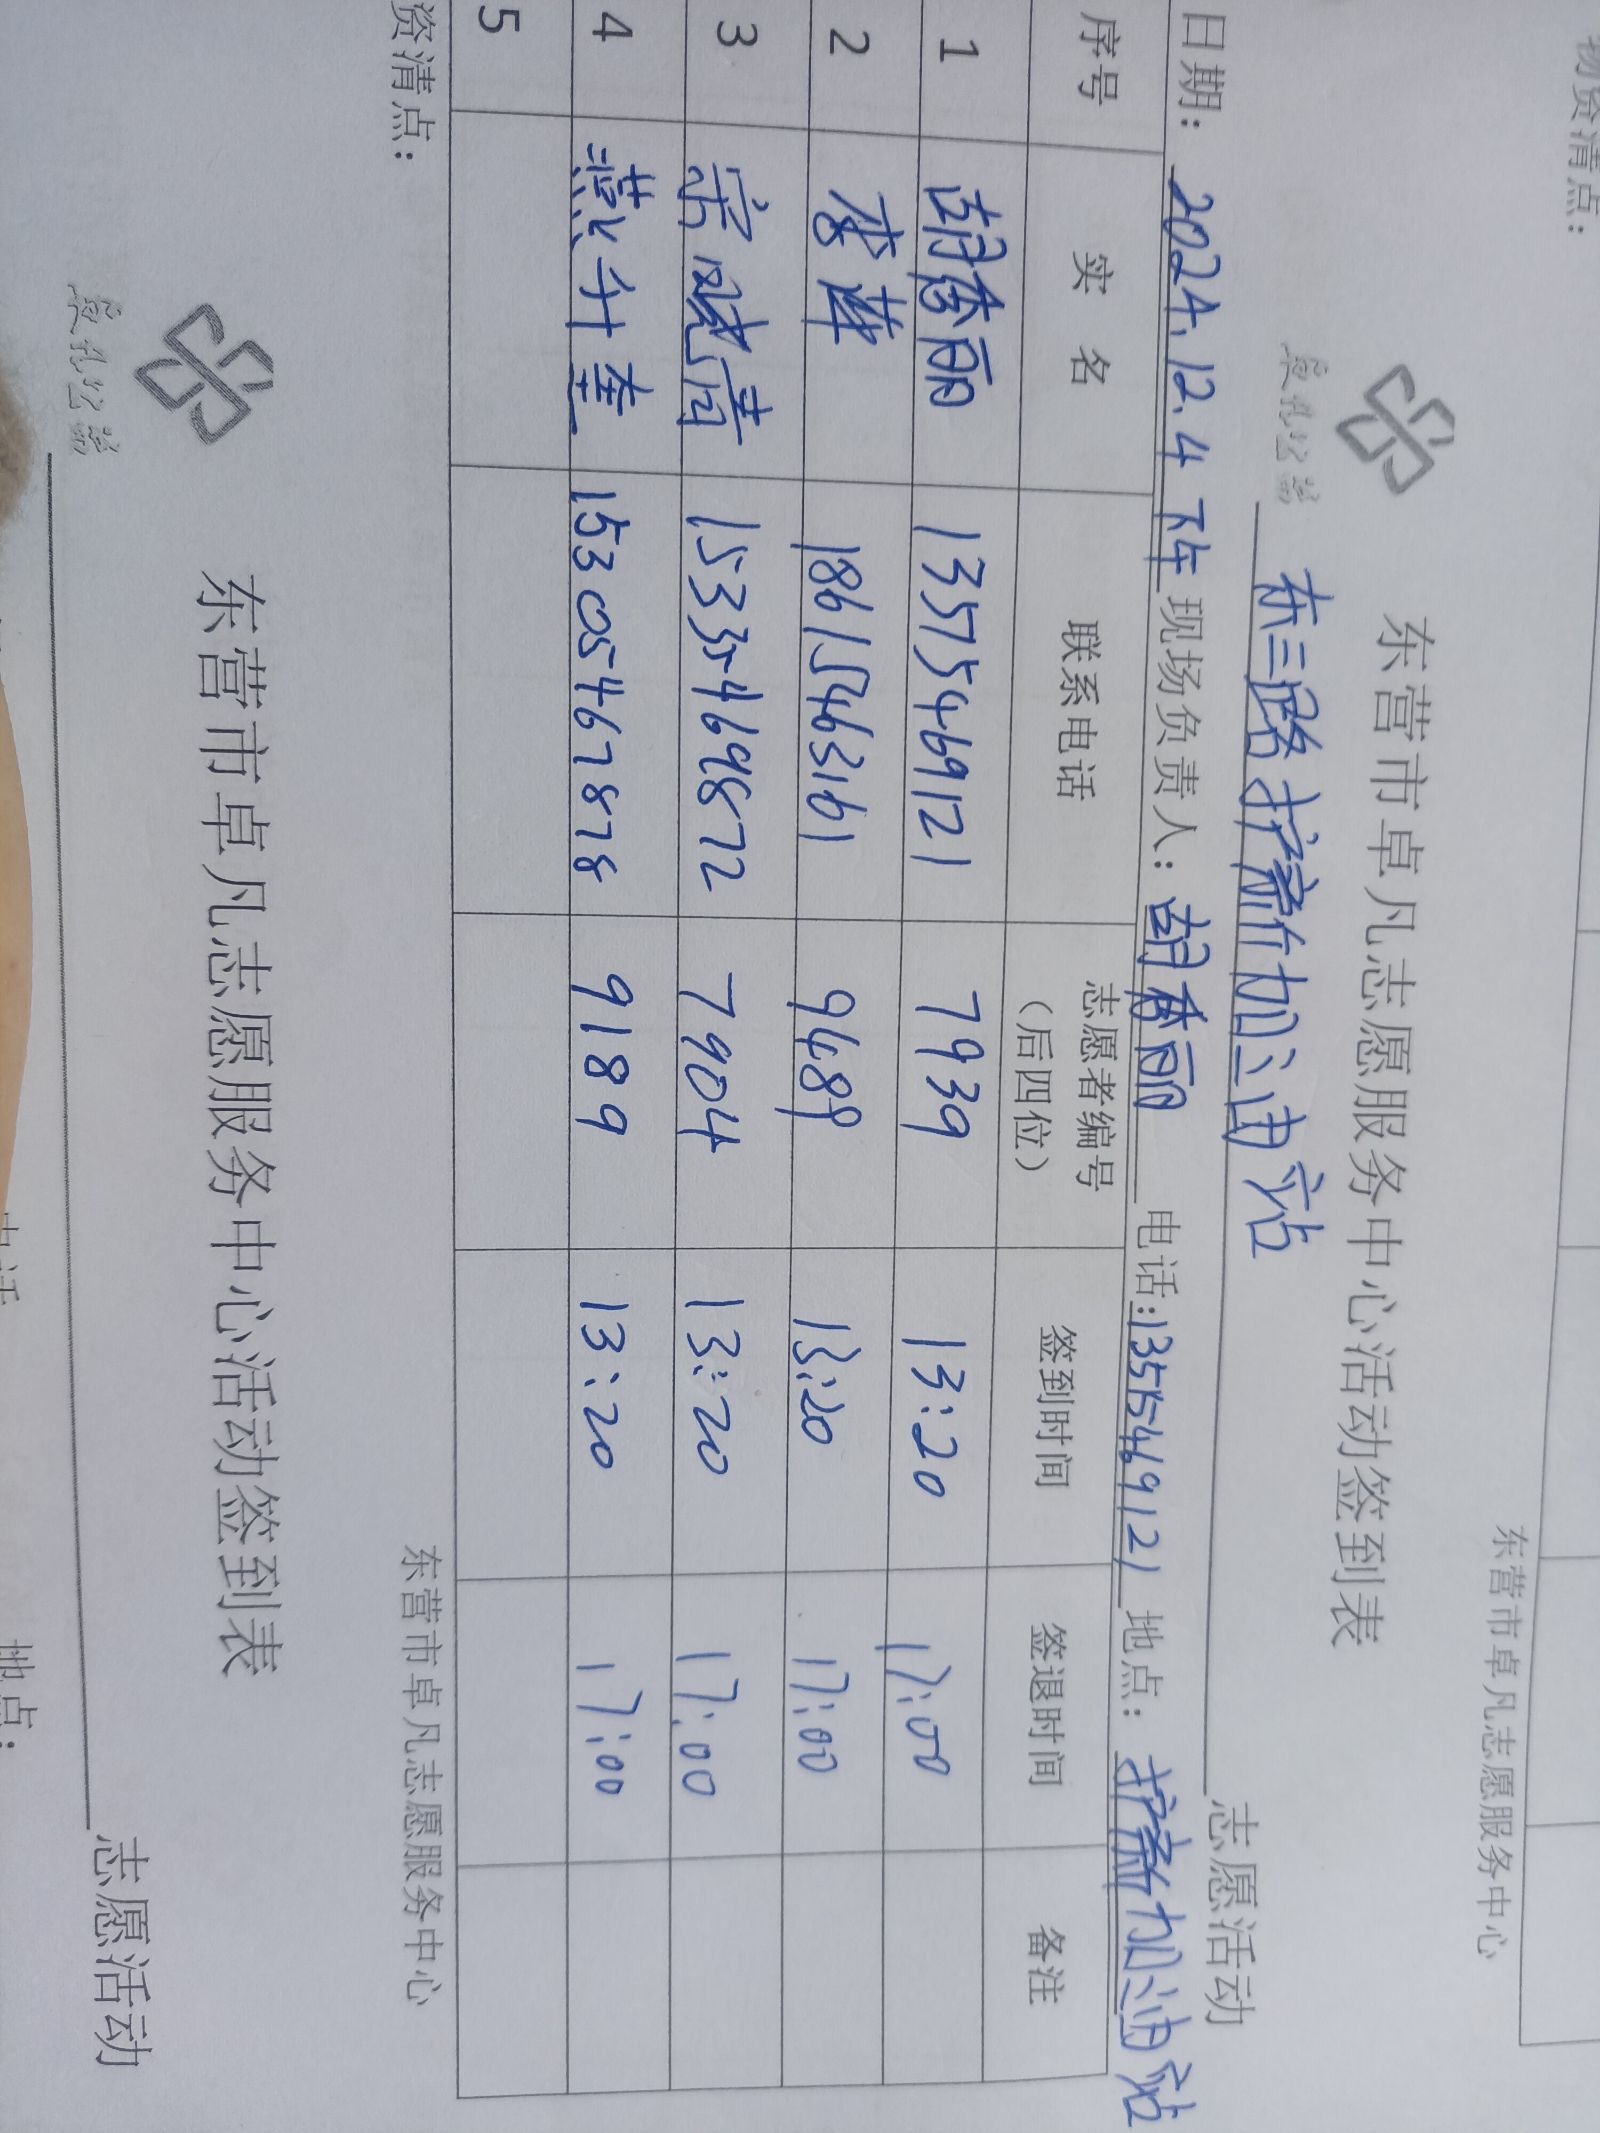 物资清点：
东营市卓凡志愿服务中心
东营市卓凡志愿服务中心活动签到表
卓凡公益
东三路护航加油站 志愿活动
日期：2024.12.4 下午 现场负责人：胡秀丽 电话：13515469121 地点：护航加油站
序号 实 名 联系电话 志愿者编号（后四位） 签到时间 签退时间 备注
1 胡秀丽 13575469121 7939 13:20 17:00
2 李華 18615463161 9489 13:20 17:00
3 宗晓青 15335469872 7904 13:20 17:00
4 燕升奎 15305467878 9189 13:20 17:00
5
资清点：
东营市卓凡志愿服务中心
东营市卓凡志愿服务中心活动签到表
卓凡公益
志愿活动
电话
地点：